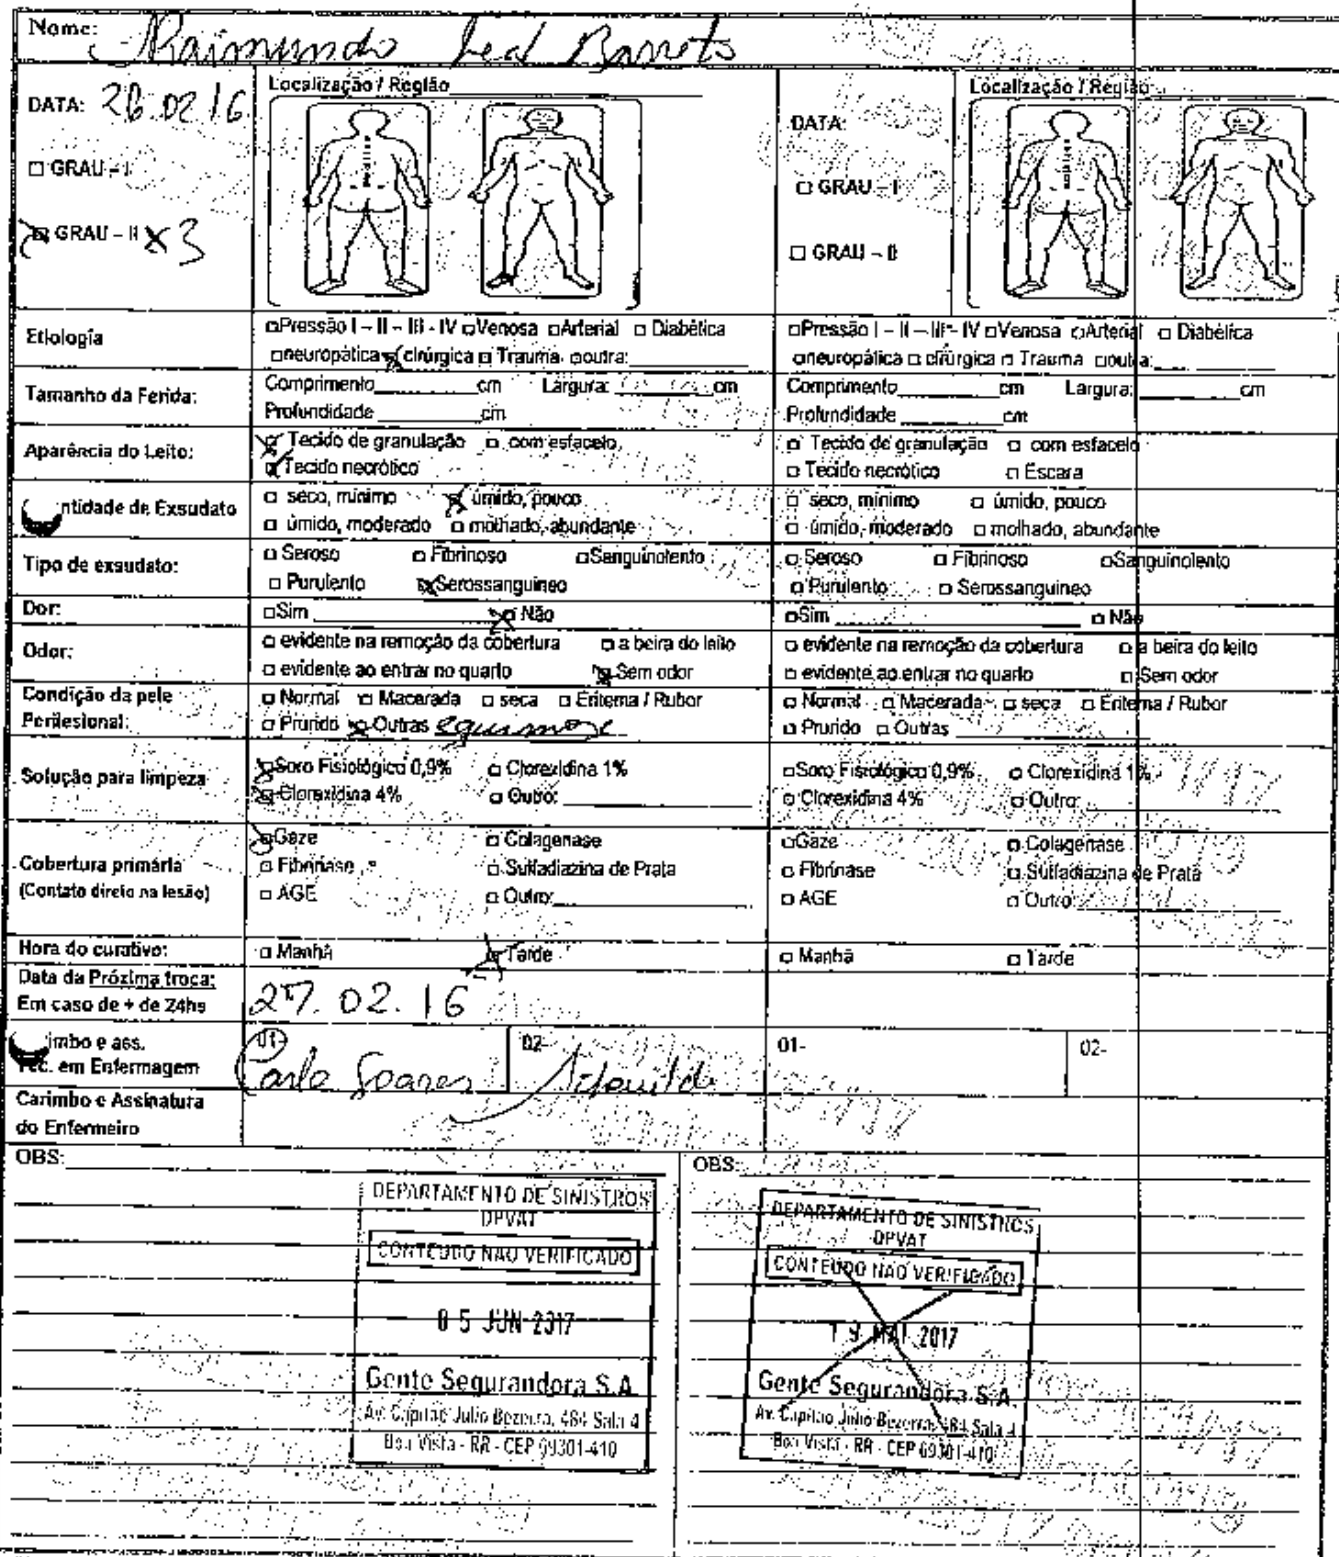 Nome: Raimundo Leal Barreto
DATA: 26.02.16
Localização / Região
DATA:
Localização / Região
□ GRAU – I
□ GRAU – I
□ GRAU – II x 3
□ GRAU – II
Etiologia
□Pressão I – II – III - IV □Venosa □Arterial □ Diabética
□neuropática □ cirúrgica □ Trauma □outra:
□Pressão I – II – III - IV □Venosa □Arterial □ Diabética
□neuropática □ cirúrgica □ Trauma □outra:
Tamanho da Ferida:
Comprimento cm Largura: cm
Profundidade cm
Comprimento cm Largura: cm
Profundidade cm
Aparência do Leito:
□ Tecido de granulação □ com esfacelo
□ Tecido necrótico
□ Tecido de granulação □ com esfacelo
□ Tecido necrótico □ Escara
ntidade de Exsudato
□ seco, mínimo □ úmido, pouco
□ úmido, moderado □ molhado, abundante
□ seco, mínimo □ úmido, pouco
□ úmido, moderado □ molhado, abundante
Tipo de exsudato:
□ Seroso □ Fibrinoso □Sanguinolento
□ Purulento □Serossanguineo
□ Seroso □ Fibrinoso □Sanguinolento
□ Purulento □ Serossanguineo
Dor:
□Sim □ Não
□Sim □ Não
Odor:
□ evidente na remoção da cobertura □ a beira do leito
□ evidente ao entrar no quarto □ Sem odor
□ evidente na remoção da cobertura □ a beira do leito
□ evidente ao entrar no quarto □ Sem odor
Condição da pele
Perilesional:
□ Normal □ Macerada □ seca □ Eritema / Rubor
□ Prurido □ Outras equimose
□ Normal □ Macerada □ seca □ Eritema / Rubor
□ Prurido □ Outras
Solução para limpeza
□Soro Fisiológico 0,9% □ Clorexidina 1%
□ Clorexidina 4% □ Outro:
□Soro Fisiológico 0,9% □ Clorexidina 1%
□ Clorexidina 4% □ Outro:
Cobertura primária
(Contato direto na lesão)
□Gaze □ Colagenase
□ Fibrinase □ Sulfadiazina de Prata
□ AGE □ Outro:
□Gaze □ Colagenase
□ Fibrinase □ Sulfadiazina de Prata
□ AGE □ Outro:
Hora do curativo:
□ Manhã □ Tarde
□ Manhã □ Tarde
Data da Próxima troca:
Em caso de + de 24hs
27.02.16
imbo e ass.
Tec. em Enfermagem
01- Carla Soares
02-
01-
02-
Carimbo e Assinatura
do Enfermeiro
OBS:
OBS:
DEPARTAMENTO DE SINISTROS
DPVAT
CONTEUDO NAO VERIFICADO
05 JUN 2017
Gente Segurandora S.A
Av. Capitao Julio Bezerra, 484 Sala 4
Boa Vista - RR - CEP 69301-410
DEPARTAMENTO DE SINISTROS
DPVAT
CONTEUDO NAO VERIFICADO
19 MAI 2017
Gente Segurandora S.A
Av. Capitao Julio Bezerra, 484 Sala 4
Boa Vista - RR - CEP 69301-410